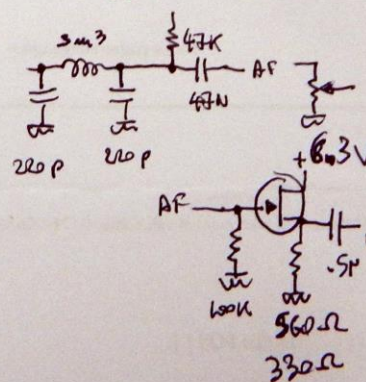 3m3
47K
47N
AF
220p
220p
+6,3V
AF
.5µ
100K
560Ω
330Ω